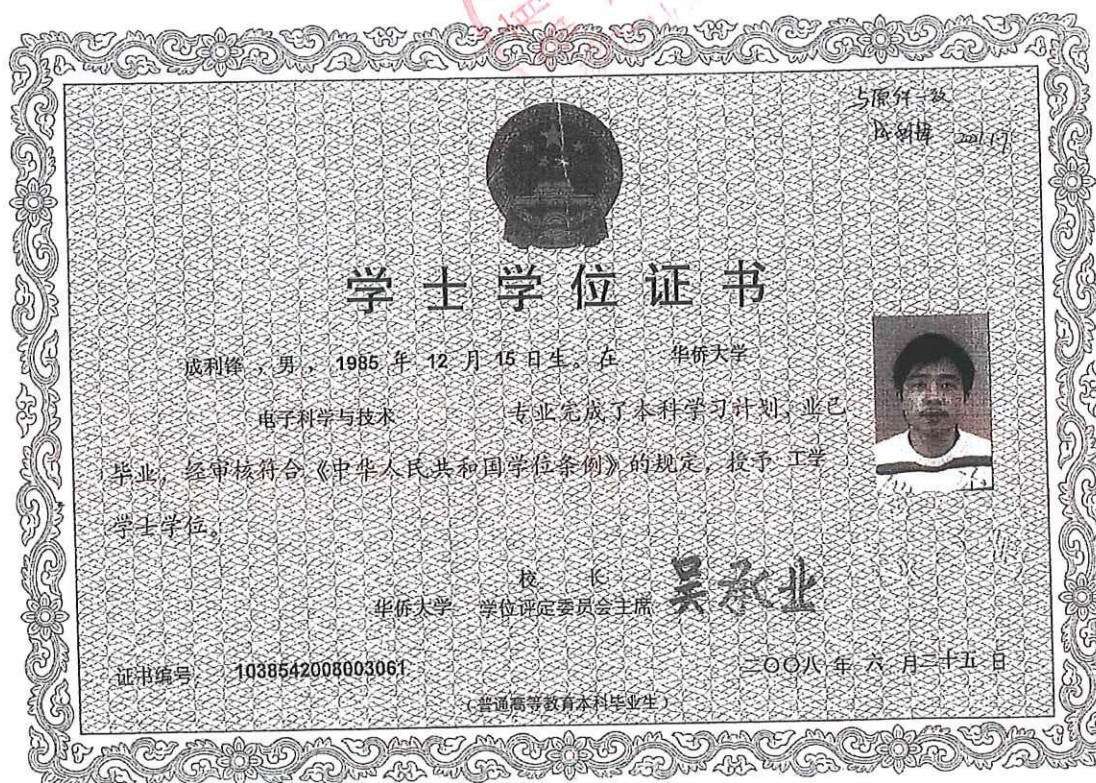 与原件一致
学士学位证书
成利锋，男，1985 年 12 月 15 日生。在 华侨大学
电子科学与技术 专业完成了本科学习计划，业已
毕业，经审核符合《中华人民共和国学位条例》的规定，授予 工学
学士学位。
校 长
华侨大学 学位评定委员会主席 吴承业
证书编号 1038542008003061
二〇〇八 年 六 月二十五 日
（普通高等教育本科毕业生）